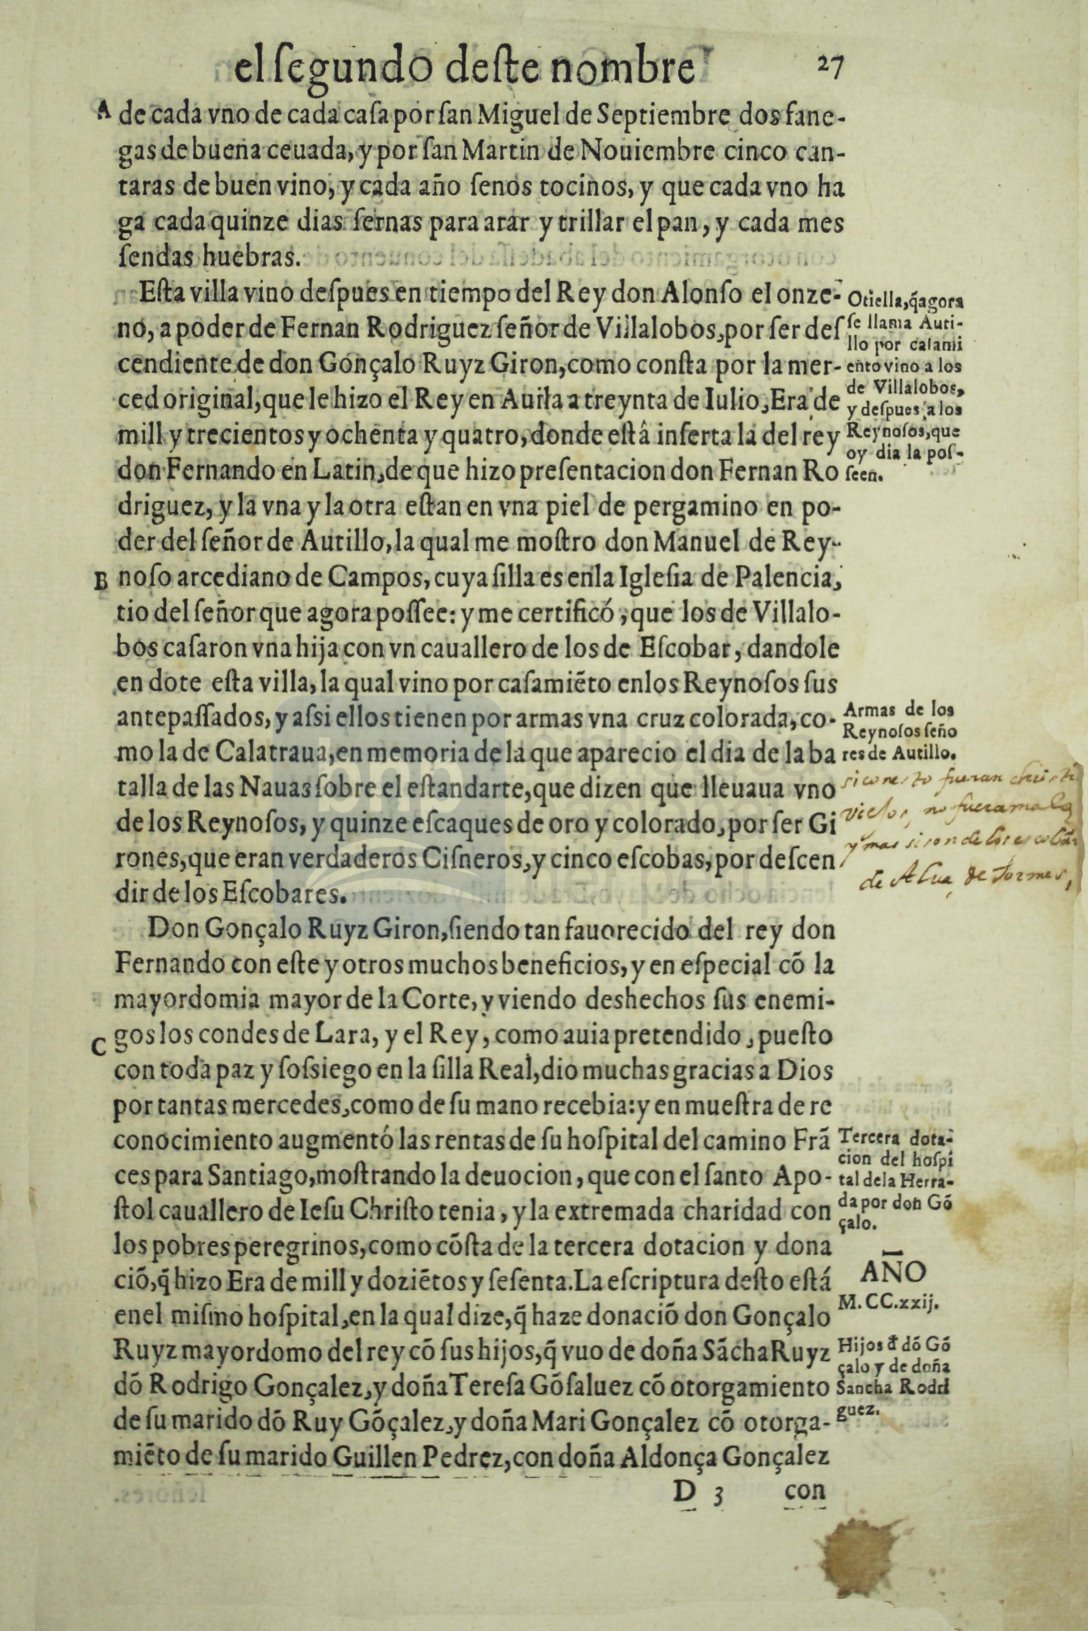 el ſegundo deſte nombre 27
A de cada vno de cada caſa por ſan Miguel de Septiembre dos fane-
gas de buena ceuada, y por ſan Martin de Nouiembre cinco can-
taras de buen vino, y cada año ſenos tocinos, y que cada vno ha
ga cada quinze dias ſernas para arar y trillar el pan, y cada mes
ſendas huebras.
Eſta villa vino deſpues en tiempo del Rey don Alonſo el onze-
no, a poder de Fernan Rodriguez ſeñor de Villalobos, por ſer deſ
cendiente de don Gonçalo Ruyz Giron, como conſta por la mer-
ced original, que le hizo el Rey en Auila a treynta de Iulio, Era de
mill y trecientos y ochenta y quatro, donde eſtá inſerta la del rey
don Fernando en Latin, de que hizo preſentacion don Fernan Ro
driguez, y la vna y la otra eſtan en vna piel de pergamino en po-
der del ſeñor de Autillo, la qual me moſtro don Manuel de Rey-
B noſo arcediano de Campos, cuya ſilla es enla Igleſia de Palencia,
tio del ſeñor que agora poſſee: y me certificó, que los de Villalo-
bos caſaron vna hija con vn cauallero de los de Eſcobar, dandole
en dote eſta villa, la qual vino por caſamiẽto enlos Reynoſos ſus
antepaſſados, y aſsi ellos tienen por armas vna cruz colorada, co-
mo la de Calatraua, en memoria de la que aparecio el dia de la ba
talla de las Nauas ſobre el eſtandarte, que dizen que lleuaua vno
de los Reynoſos, y quinze eſcaques de oro y colorado, por ſer Gi
rones, que eran verdaderos Ciſneros, y cinco eſcobas, por deſcen
dir de los Eſcobares.
Don Gonçalo Ruyz Giron, ſiendo tan fauorecido del rey don
Fernando con eſte y otros muchos beneficios, y en eſpecial cõ la
mayordomia mayor de la Corte, y viendo deshechos ſus enemi-
C gos los condes de Lara, y el Rey, como auia pretendido, pueſto
con toda paz y ſoſsiego en la ſilla Real, dio muchas gracias a Dios
por tantas mercedes, como de ſu mano recebia: y en mueſtra de re
conocimiento augmentó las rentas de ſu hoſpital del camino Frã
ces para Santiago, moſtrando la deuocion, que con el ſanto Apo-
ſtol cauallero de Ieſu Chriſto tenia, y la extremada charidad con
los pobres peregrinos, como cõſta de la tercera dotacion y dona
ciõ, q̃ hizo Era de mill y doziẽtos y ſeſenta. La eſcriptura deſto eſtá
enel miſmo hoſpital, en la qual dize, q̃ haze donaciõ don Gonçalo
Ruyz mayordomo del rey cõ ſus hijos, q̃ vuo de doña Sãcha Ruyz
dõ Rodrigo Gonçalez, y doña Tereſa Gõſaluez cõ otorgamiento
de ſu marido dõ Ruy Gõçalez, y doña Mari Gonçalez cõ otorga-
miẽto de ſu marido Guillen Pedrez, con doña Aldonça Gonçalez
D 3 con
Otiella, q̃ agora
ſe llama Auti-
llo por caſami
ento vino a los
de Villalobos,
y deſpues a los
Reynoſos, que
oy dia la poſ-
ſeen.
Armas de los
Reynoſos ſeño
res de Autillo.
Tercera dota-
cion del hoſpi
tal de la Herra-
da por don Gõ
çalo.
AÑO
M.CC.xxij.
Hijos đ dõ Gõ
çalo y de doña
Sancha Rodri
guez.